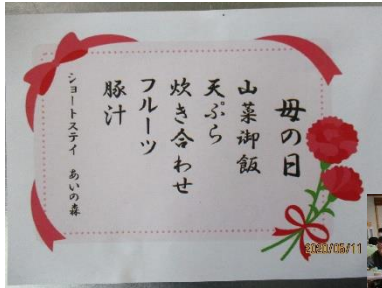 母の日
山菜御飯
天ぷら
炊き合わせ
フルーツ
豚汁
ショートステイ　あいの森
2020/05/11